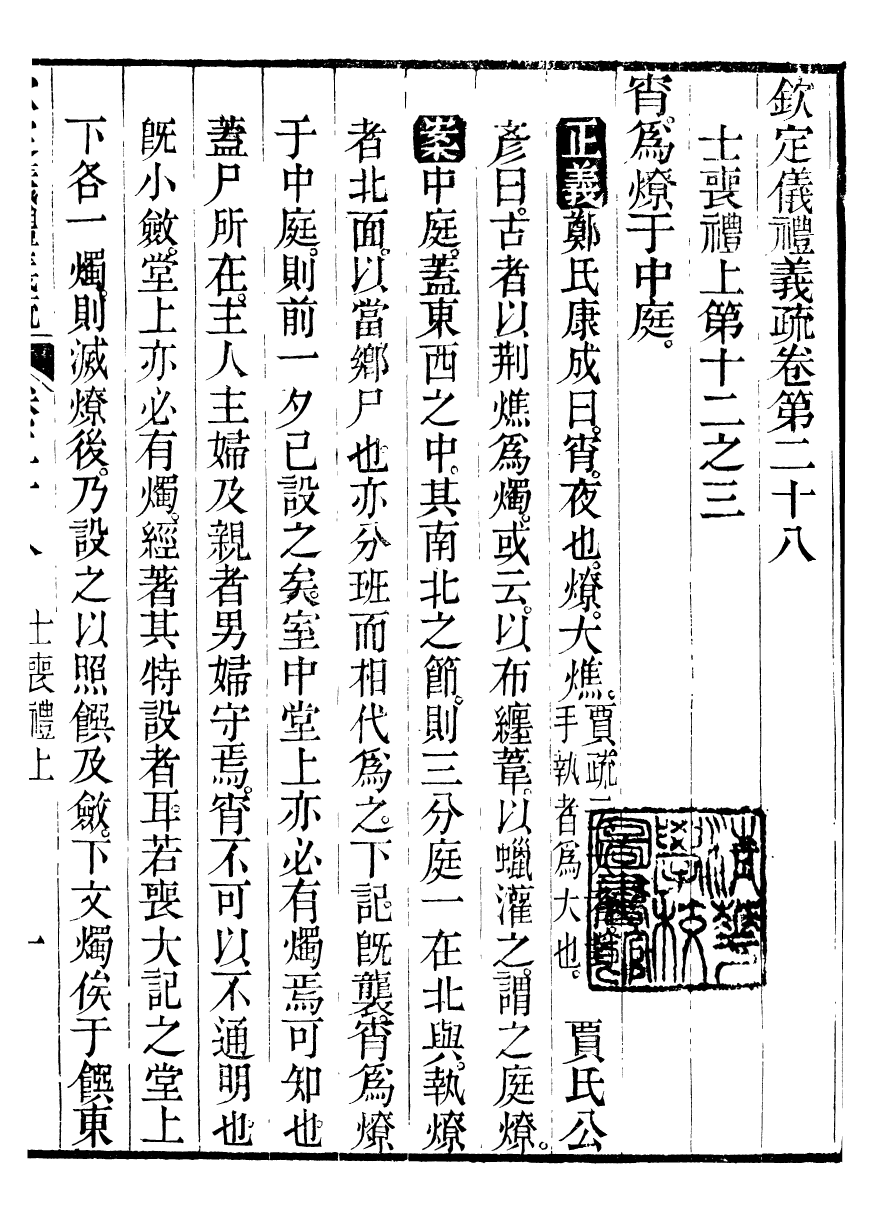 欽定儀禮義疏卷第二十八
士喪禮上第十二之三
宵爲燎于中庭。
正義鄭氏康成曰。宵。夜也。燎。大燋。賈疏
手執者爲大也。　賈氏公
彥曰。古者以荆燋爲燭。或云。以布纏葦。以蠟灌之。謂之庭燎。
案中庭。蓋東西之中。其南北之節。則三分庭一在北與。執燎
者北面。以當鄉尸也。亦分班而相代爲之。下記。旣襲。宵爲燎
于中庭。則前一夕已設之矣。室中堂上亦必有燭焉可知也
蓋尸所在。主人主婦及親者男婦守焉。宵不可以不通明也
旣小斂。堂上亦必有燭。經著其特設者耳。若喪大記之堂上
下各一燭。則滅燎後。乃設之以照饌及斂。下文燭俟于饌東
士喪禮上
一
清華
學校
圖書館